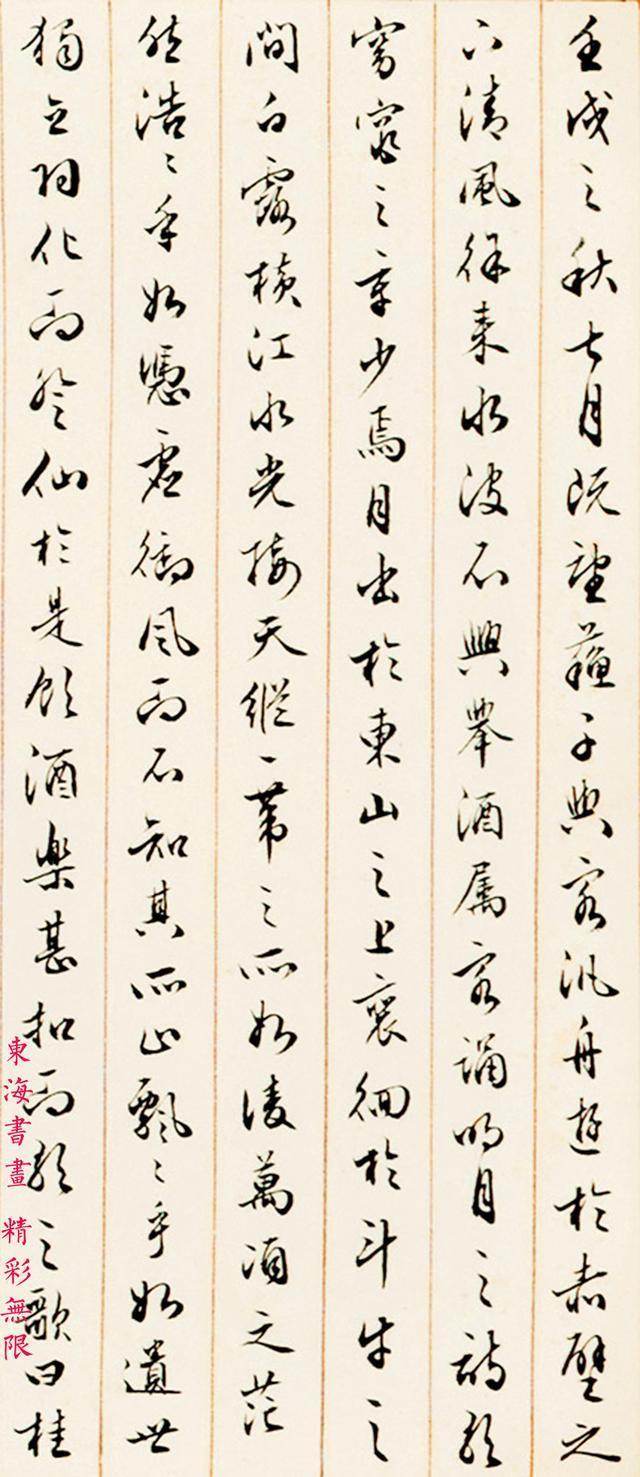 壬戌之秋七月既望蘇子與客汎舟遊於赤壁之
下清風徐來水波不興舉酒屬客誦明月之詩歌
窈窕之章少焉月出於東山之上裵徊於斗牛之
間白露橫江水光接天縱一葦之所如淩萬頃之茫
然浩〻乎如憑虛御風而不知其所止飄〻乎如遺世
獨立羽化而登仙於是飲酒樂甚扣而歌之歌曰桂
東海書畫 精彩無限